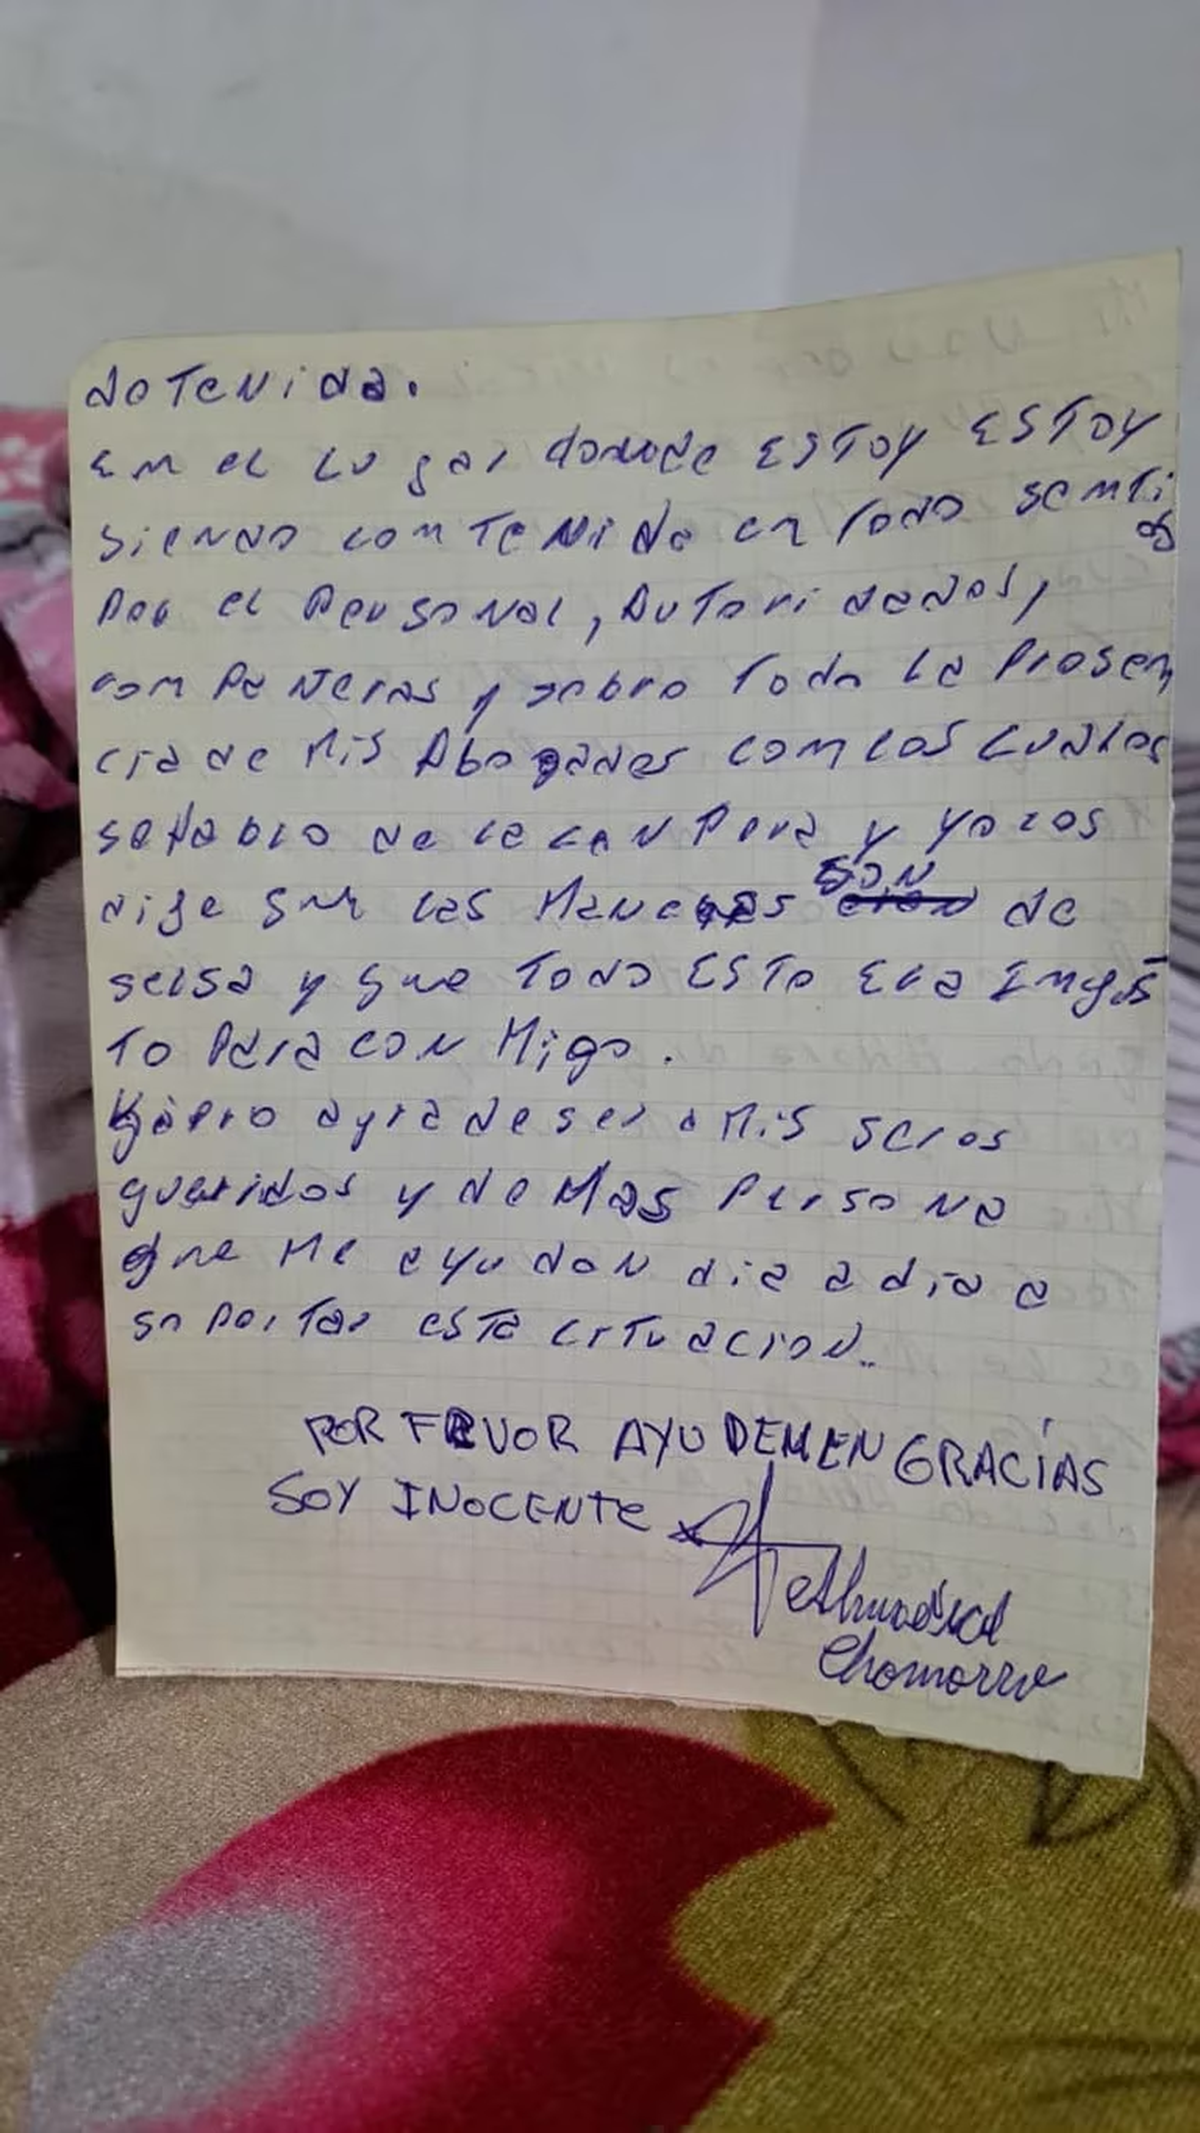 detenida.
En el lugar donde ESTOY ESTOY
siendo comTeNida en Todo semti
do
por el PersoNal, AuToridades,
compaÑeras y sobre Todo la Presen
cia de Mis Abogados com los cuales
se Hablo de la camPera y yo los
dije que las Manchas SON de
selsa y que Todo ESTo Era Imjus
To Para con Migo.
Quiero agradeser a Mis seres
queridos y de Mas PersoNa
que Me ayudan dia a dia a
soporTar esTa ciTuacioN..
POR FAVOR AYUDEMEN GRACÍAS
SOY INOCENTE
Chamorro